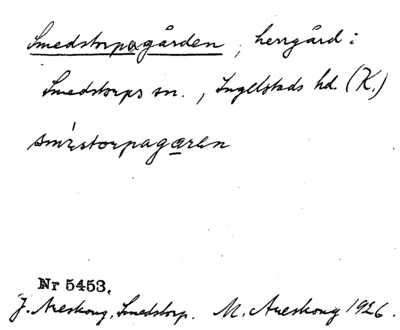 Smedstorpagården, herrgård i
Smedstorps sn., Ingelstads hd. (K.)
smestorpagaren
Nr 5453.
J. Areskoug, Smedstorp. M. Areskoug 1926.